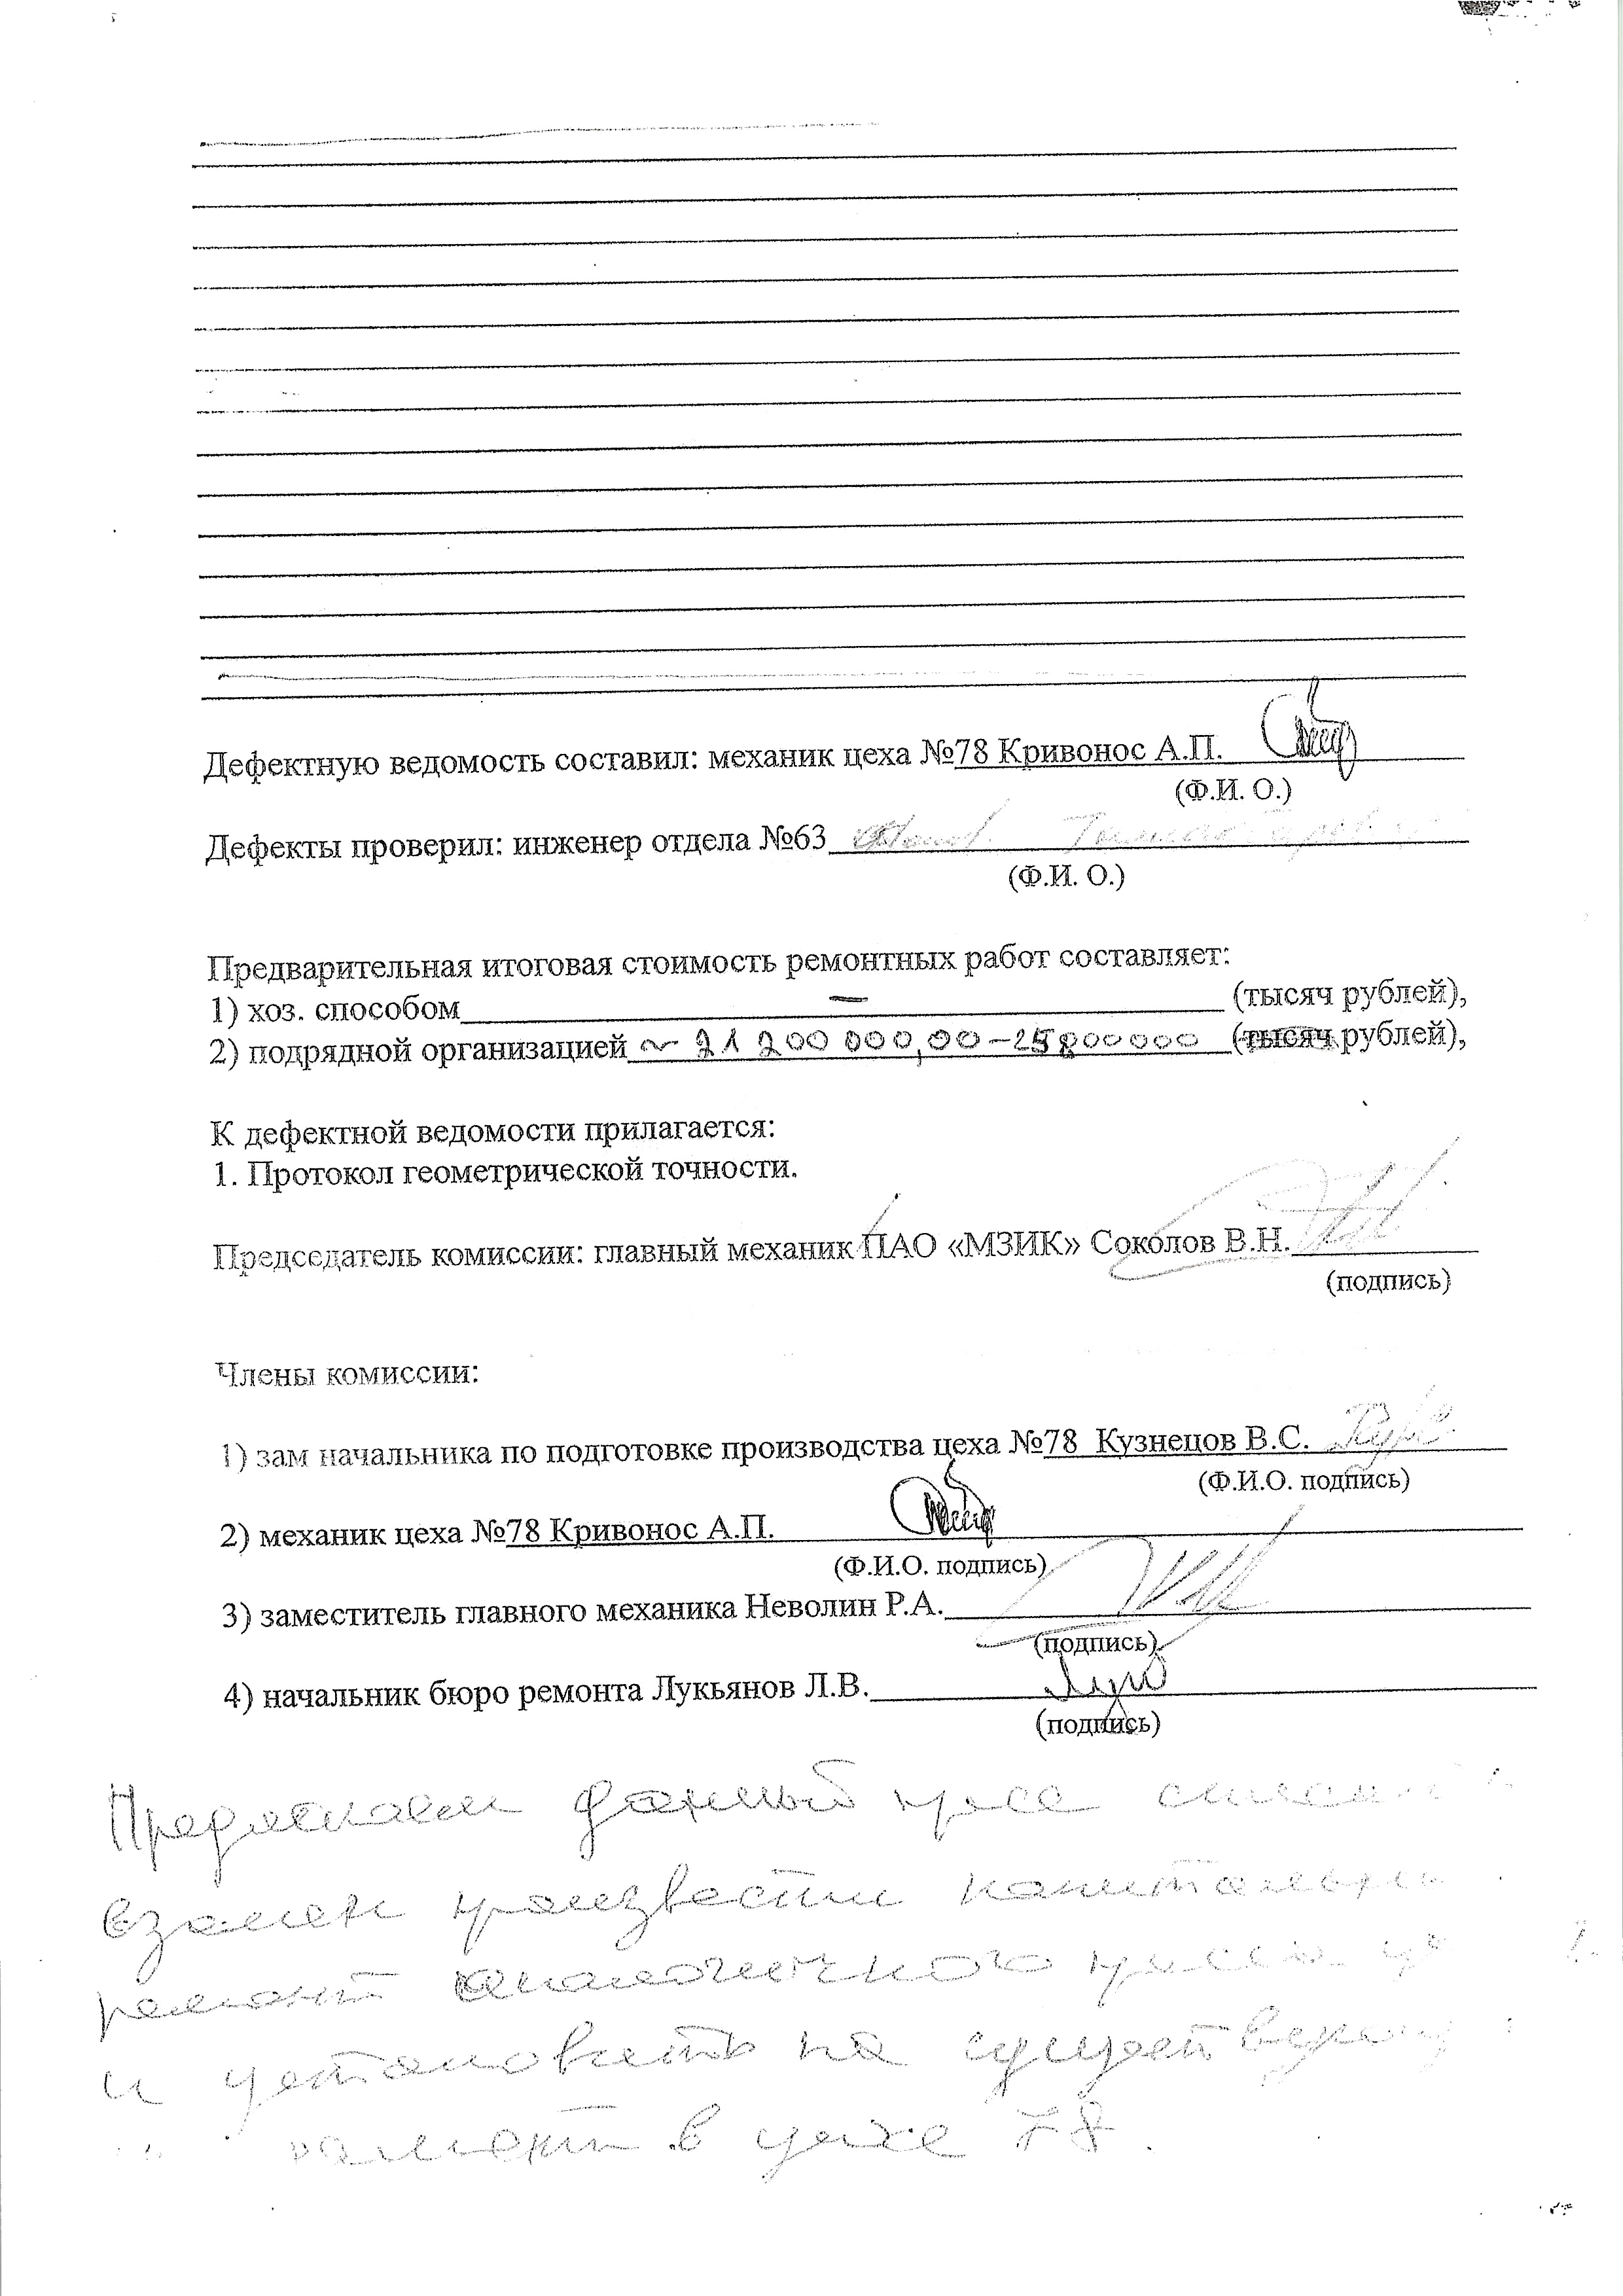 Дефектную ведомость составил: механик цеха №78 Кривонос А.П.
(Ф.И. О.)
Дефекты проверил: инженер отдела №63
(Ф.И. О.)
Предварительная итоговая стоимость ремонтных работ составляет:
1) хоз. способом — (тысяч рублей),
2) подрядной организацией (тысяч рублей),
К дефектной ведомости прилагается:
1. Протокол геометрической точности.
Председатель комиссии: главный механик ПАО «МЗИК» Соколов В.Н.
(подпись)
Члены комиссии:
1) зам начальника по подготовке производства цеха №78 Кузнецов В.С.
(Ф.И.О. подпись)
2) механик цеха №78 Кривонос А.П.
(Ф.И.О. подпись)
3) заместитель главного механика Неволин Р.А.
(подпись)
4) начальник бюро ремонта Лукьянов Л.В.
(подпись)
Предлагаем данный пресс
взамен произвести капитальный
ремонт аналогичного пресса
и установить на
в цехе 78